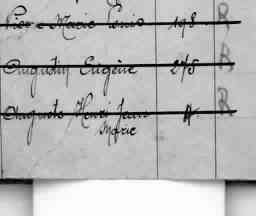 Pierre Marie Louis 198 R
Augustin Eugène 275 R
Auguste Henri Jean 4 R
Marie